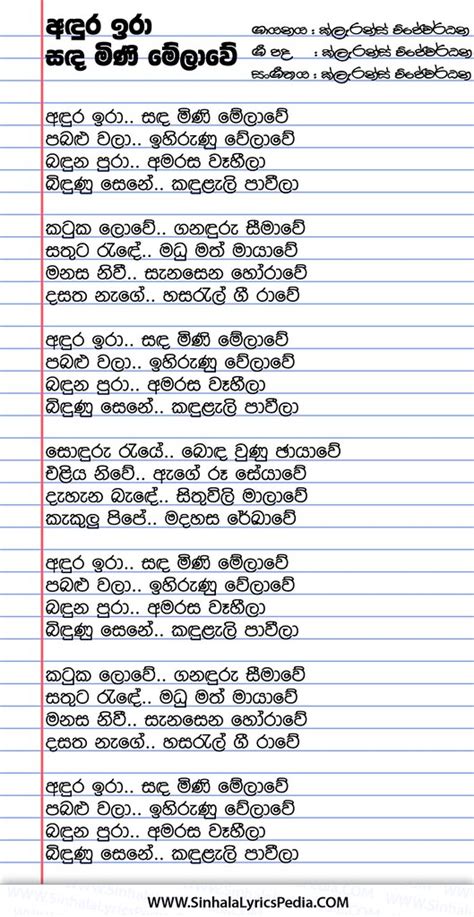 අඳුර ඉරා
සඳ මිණි මේලාවේ
ගායනය : ක්ලැරන්ස් විජේවර්ධන
ගී පද : ක්ලැරන්ස් විජේවර්ධන
සංගීතය : ක්ලැරන්ස් විජේවර්ධන
අඳුර ඉරා.. සඳ මිණි මේලාවේ
පබළු වලා.. ඉහිරුණු වේලාවේ
බඳුන පුරා.. අමරස වෑහීලා
බිඳුණු සෙනේ.. කඳුළැලි පාවීලා
කටුක ලොවේ.. ගනඳුරු සීමාවේ
සතුට රැඳේ.. මධු මත් මායාවේ
මනස නිවී.. සැනසෙන හෝරාවේ
දසත නැගේ.. හසරැල් ගී රාවේ
අඳුර ඉරා.. සඳ මිණි මේලාවේ
පබළු වලා.. ඉහිරුණු වේලාවේ
බඳුන පුරා.. අමරස වෑහීලා
බිඳුණු සෙනේ.. කඳුළැලි පාවීලා
සොඳුරු රැයේ.. බොඳ වුණු ඡායාවේ
එළිය නිවේ.. ඇගේ රූ සේයාවේ
දැහැන බැඳේ.. සිතුවිලි මාලාවේ
කැකුලු පිපේ.. මදහස රේඛාවේ
අඳුර ඉරා.. සඳ මිණි මේලාවේ
පබළු වලා.. ඉහිරුණු වේලාවේ
බඳුන පුරා.. අමරස වෑහීලා
බිඳුණු සෙනේ.. කඳුළැලි පාවීලා
කටුක ලොවේ.. ගනඳුරු සීමාවේ
සතුට රැඳේ.. මධු මත් මායාවේ
මනස නිවී.. සැනසෙන හෝරාවේ
දසත නැගේ.. හසරැල් ගී රාවේ
අඳුර ඉරා.. සඳ මිණි මේලාවේ
පබළු වලා.. ඉහිරුණු වේලාවේ
බඳුන පුරා.. අමරස වෑහීලා
බිඳුණු සෙනේ.. කඳුළැලි පාවීලා
www.SinhalaLyricsPedia.COM